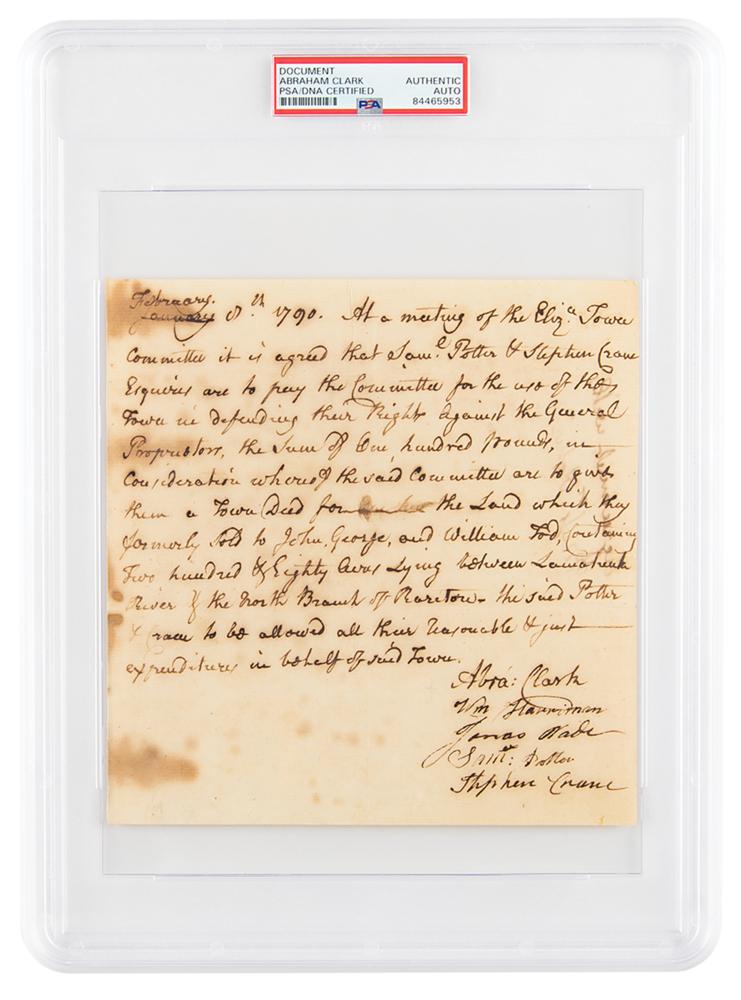 DOCUMENT
ABRAHAM CLARK AUTHENTIC
PSA/DNA CERTIFIED AUTO
PSA 84465953
February.
January 8.th 1790. At a meeting of the Eliz.a Town
Committee it is agreed that Sam.l Potter & Stephen Crane
Esquires are to pay the Committee for the use of the
Town in defending their Right against the General
Proprietors, the Sum of One hundred pounds, in
Consideration whereof the said Committee are to give
them a Town Deed for the Land which they
formerly Sold to John, George, and William Tod, Containing
Two hundred & Eighty Acres Lying between
River & the North Branch of Rareton - the said Potter
& Crane to be allowed all their reasonable & just
expenditures in behalf of said Town.
Abra: Clark
Wm
Jonas Wade
Saml: Potter
Stephen Crane